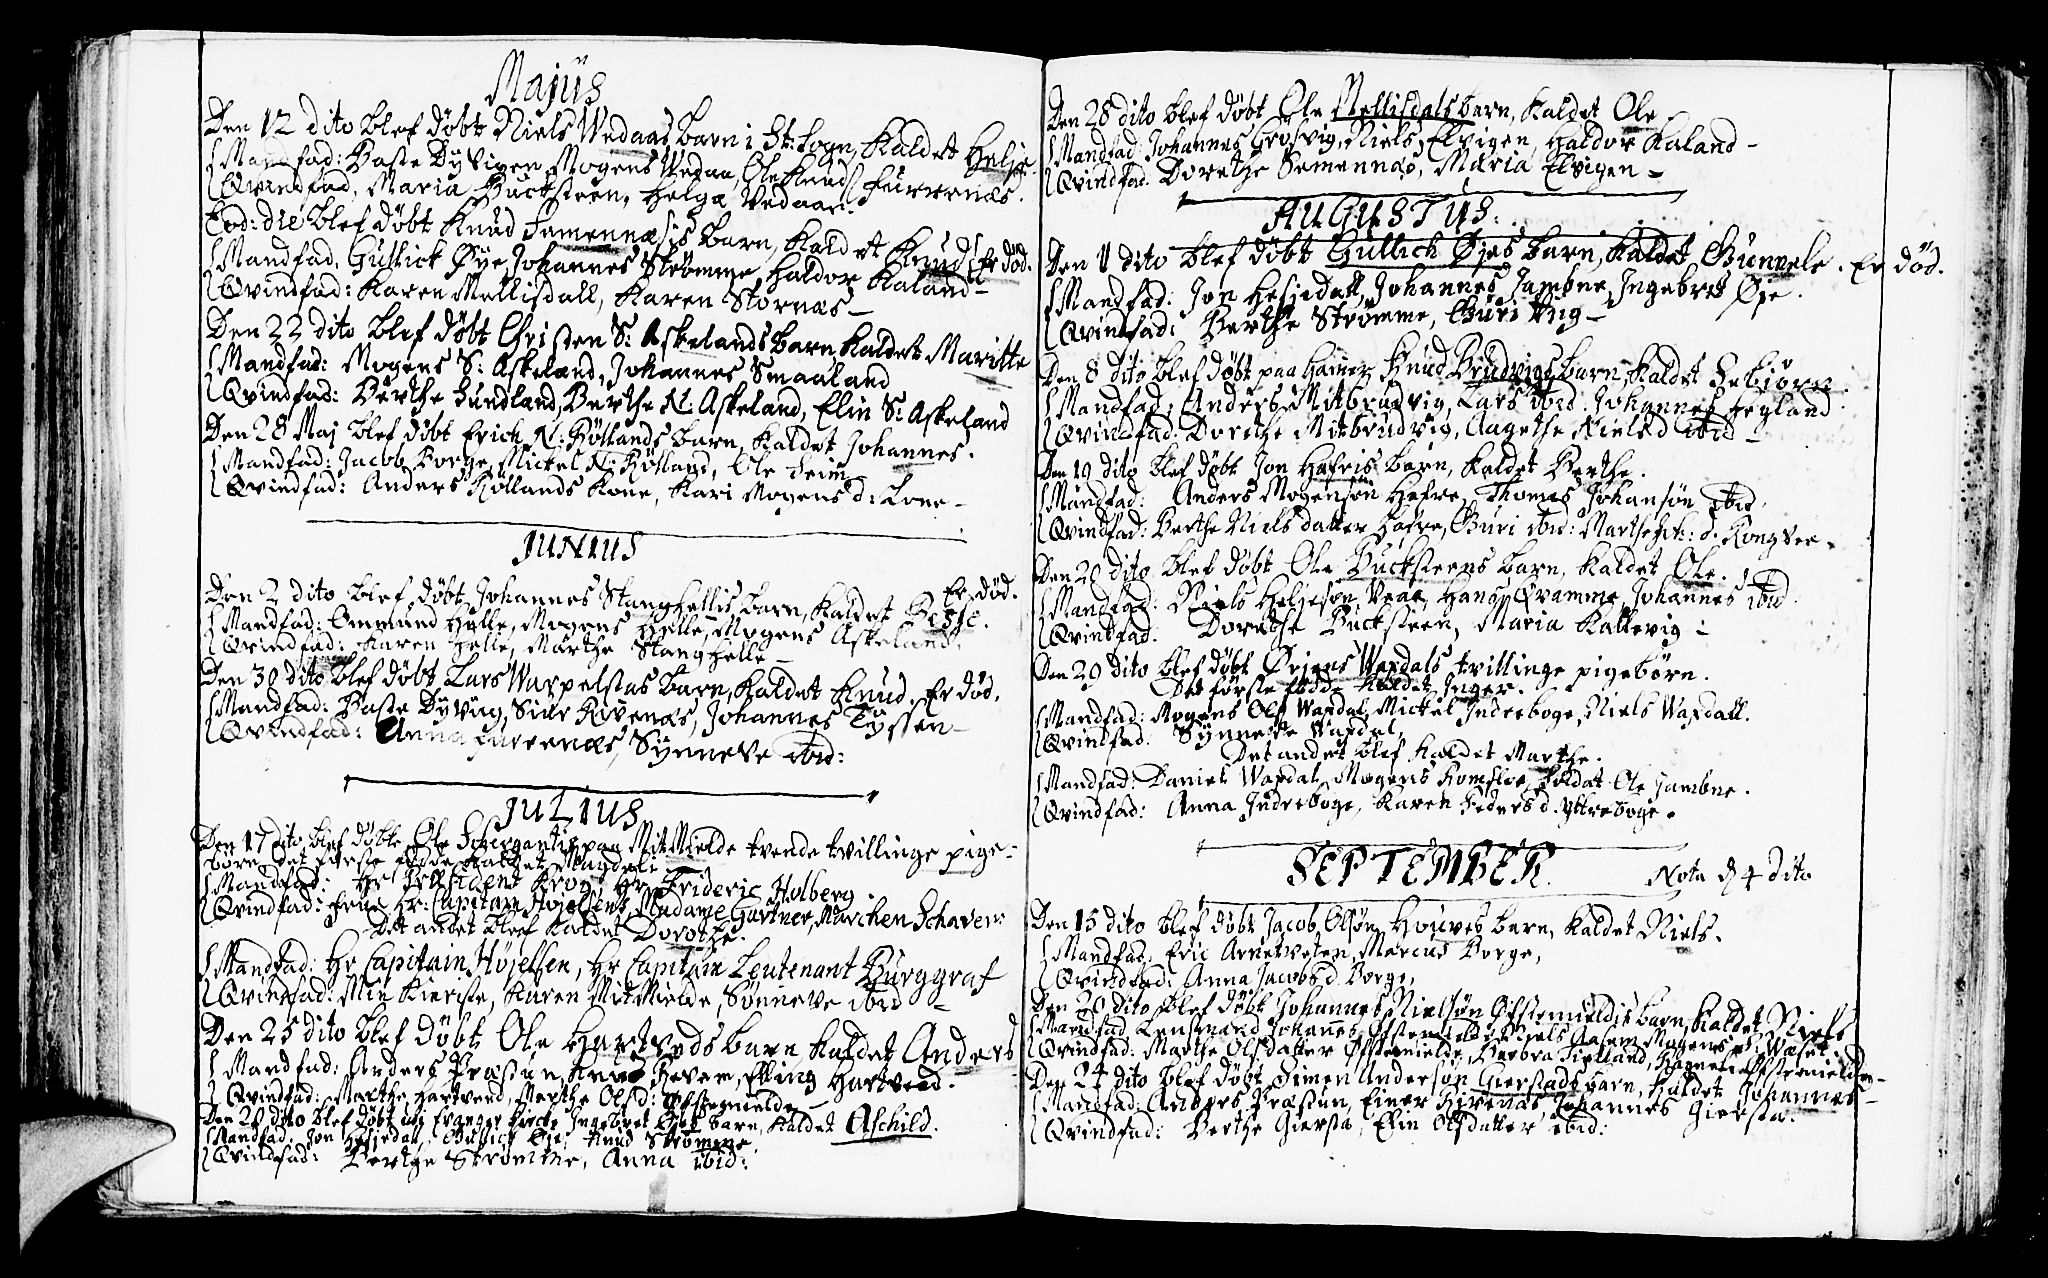 Majus
Den 12 dito blef döbt Niels Wedaas barn i St: Sogn, kaldet Helje
Mandfad: Baste Dyvigen, Mogens Vedaa, Ole Knuds Furrenæs.
Qvindfad, Maria Bucksteen, Helga Vedaa.
Eod: die blef döbt Knud Femennæsis barn, kaldet Knud. Er död.
Mandfad, Gullick Øye, Johannes Strømme, Haldor Kaland-
Qvindfad: Karen Mellisdall, Karen Stornæs-
Den 22 dito blef döbt Christen S: Askelands barn kaldet Maritte
Mandfad: Mogens S: Askeland, Johannes Smaaland
Qvindfad: Berthe Sundland, Berthe N: Askeland, Elin S: Askeland
Den 28 Maj blef döbt Erich N: Röllands barn, kaldet Johannes.
Mandfad: Jacob Borge, Mickel N: Rölland, Ole Teim
Qvindfad: Anders Röllands kone, Kari Mogens d: Lone-
JUNIUS
Den 2 dito blef döbt Johannes Stanghellis barn, kaldet Besse. Er död.
Mandfad: Ommund Helle, Mogens Helle, Mogens Askeland.
Qvindfad: Karen Helle, Marthe Stanghelle-
Den 30 dito blef döbt Lars Warpelstas barn, kaldet Knud. Er död.
Mandfad: Baste Dyvig, Siur Rivenæs, Johannes Tyssen-
Qvindfad: Anna Furrenæs, Synneve ibid:
JULIUS
Den 17 dito blef döbt Ole Schergantis paa Mit Mielde tvende tvillinge pige-
börn det förste födde kaldet Magdeli
Mandfad: Hr Præsident Krog, Hr Frideric Holberg
Qvindfad: Frue Hr: Capitain Höjelsens, Madame Gartner, Marchen Schaven:
Det andet bleef kaldet Dorothe.
Mandfad: Hr Capitain Höjelsen, Hr Capitain Leutenant Burggraf
Qvindfad: Min Kierste, Karen MitMielde, Sönneve ibid-
Den 25 dito blef döbt Ole Hartveds barn kaldet Anders
Mandfad: Anders Præstun, Knud Revem, Elling Hartved.
Qvindfad: Marthe Hartvend, Marthe Olsd: Østemielde
Den 28 dito blef döbt udi Evanger Kirche Ingebret Øjes barn, kaldet Aschild.
Mandfad. Jon Hesjedal, Gullick Øje, Knud Strömme
Qvindfad: Berthe Strömme, Anna ibid:
Den 28 dito blef döbt Ole Mellisdals barn, kaldet Ole.
Mandfad: Johannes Grosvig, Niels Elvigen, Haldor Kaland-
Qvindfad: Dorethe Semennæs, Maria Elvigen-
AUGUSTUS:
Den 1 dito blef döbt Gullich Øjes barn, kaldet Gunnele. Er död.
Mandfad: Jon Hesjedall, Johannes Jamne, Ingebret Øje.
Qvindfad: Berthe Strømme, Guri Viig-
Den 8 dito blef döbt paa Hamer Knud Brudvigs barn, kaldet Sebiörn.
Mandfad: Anders Mitbrudvig, Lars ibid. Johannes Fegland.
Qvindfad: Dorethe Mitbrudvig, Aagethe Nielsd ibid-
Den 19 dito blef döbt Jon Hafris barn, kaldet Berthe.
Mandfad: Anders Mogensön Hafre, Thomes Johansön ibid.
Qvindfad: Berthe Niels datter Hafre, Guri ibid: Marthe Erk: d. Kongsvee.
Den 20 dito blef döbt Ole Bucksteens barn, kaldet Ole.
Mandfad: Niels Heljesøn Veae, Hans Qvamme, Johannes ibid.
Qvindfad. Dorethe Bucksteen, Maria Kallevig-
Den 29 dito blef döbt Örjens Waxdals tvillinge pigebörn.
Det förste födde kaldet Inger.
Mandfad: Mogens Ols Waxdal, Mickel Indreboge, Niels Waxdall.
Qvindfad: Synneve Waxdal,
Det andet blef kaldet Marthe.
Mandfad: Daniel Waxdal, Mogens Romsloe, Soldat Ole Jamne.
Qvindfad: Anna Indreboge, Karen Peders d. Yttreboge.
SEPTEMBER. Nota d 4 dito
Den 15 dito blef döbt Jacob Olsøn Houves barn, kaldet Niels.
Mandfad: Eric Arnetvelen, Marcus Borge,
Qvindfad: Anna Jacobs d Borge,
Den 20 dito blef döbt Johannes Nielsøn Østemieldis barn, kaldet Niels
Mandfad Lensmand Johannes Østemielde, Niels Aasem, Mogens Waset.
Qvindfad: Marthe Olsdatter Østemielde, Berbra Fielland, Ragnele Østemielde-
Den 24 dito blef döbt Simen Andersøn Gierstads barn, kaldet Johannes-
Mandfad: Anders Præstun, Einer Rivenæs, Johannes Giersta.
Qvindfad: Berthe Giersta, Elin Olsdatter ibid: